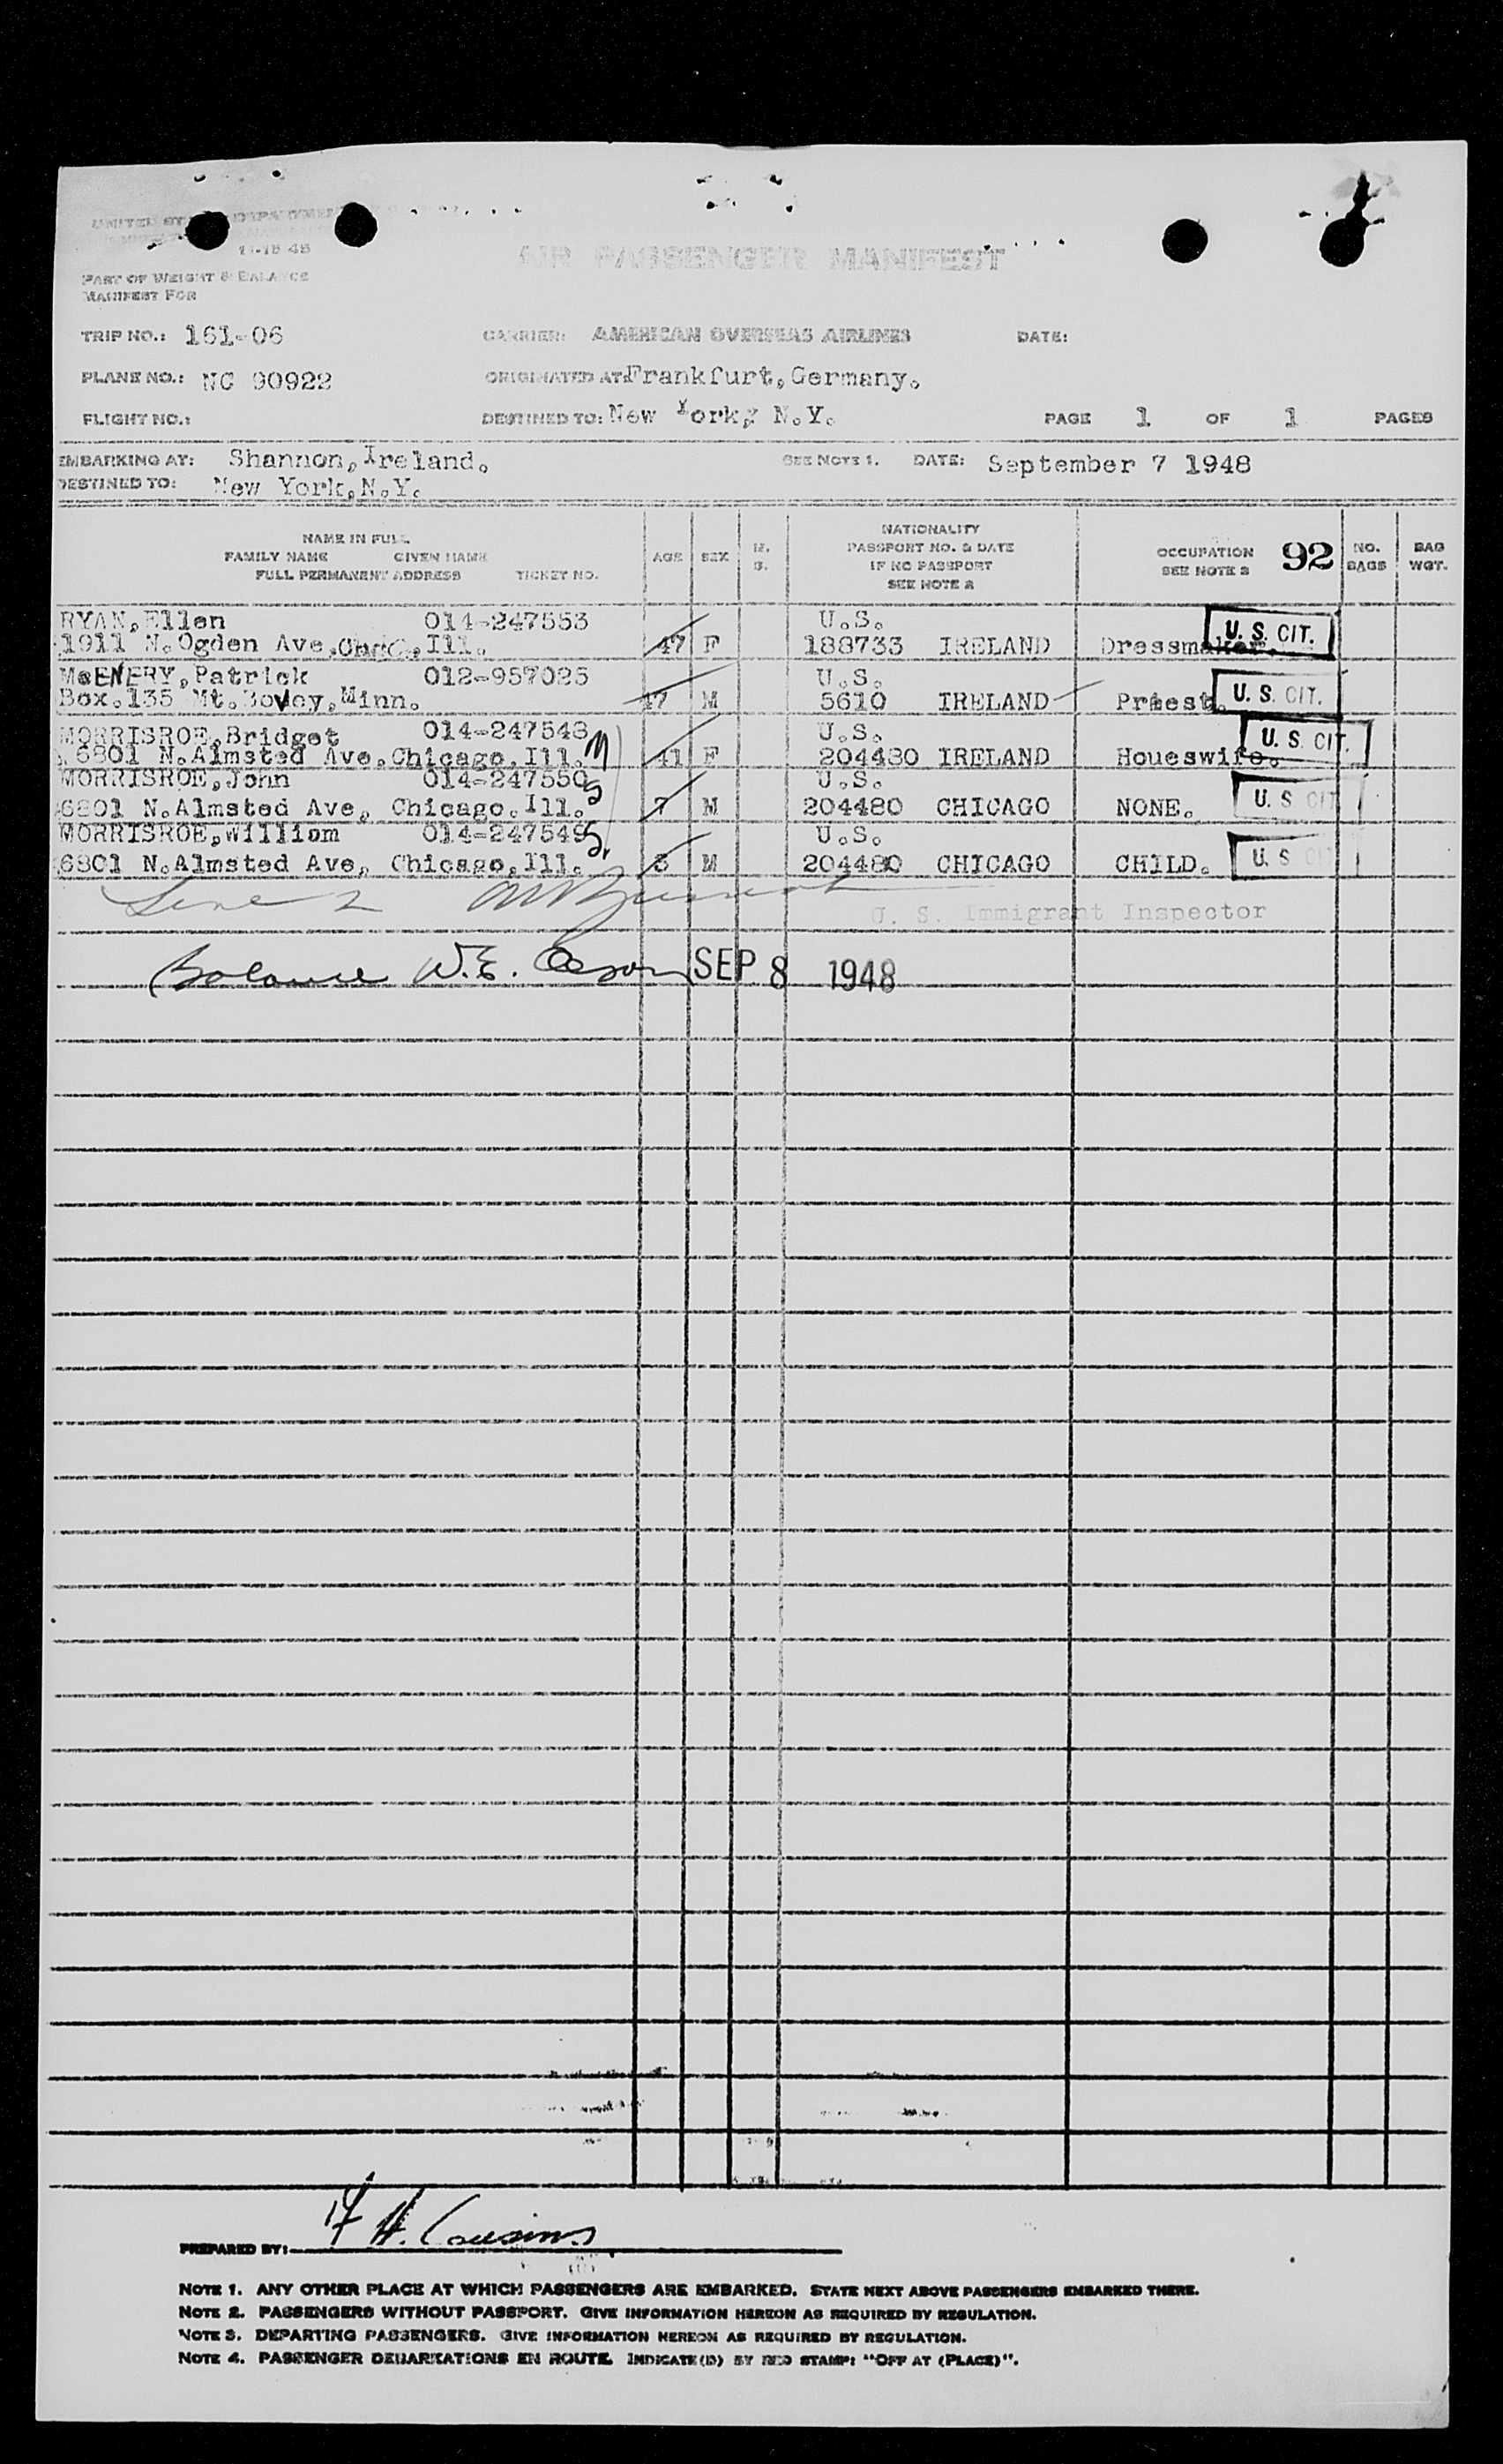 UNITED ST DEPARTMENT
11-15 45
AIR PASSENGER MANIFEST
PART OF WEIGHT & BALANCE
MANIFEST FOR
TRIP NO.: 161-06 CARRIER: AMERICAN OVERSEAS AIRLINES DATE:
PLANE NO.: NC 90922 ORIGINATED AT: Frankfurt, Germany.
FLIGHT NO.: DESTINED TO: New York, N.Y. PAGE 1 OF 1 PAGES
EMBARKING AT: Shannon, Ireland. SEE NOTE 1. DATE: September 7 1948
DESTINED TO: New York, N.Y.
NAME IN FULL
FAMILY NAME GIVEN NAME
FULL PERMANENT ADDRESS TICKET NO.
AGE SEX
NATIONALITY
PASSPORT NO. & DATE
IF NO PASSPORT
SEE NOTE 2
OCCUPATION
SEE NOTE 3
92
NO.
BAGS
BAG
WGT.
RYAN, Ellen 014-247553 U.S. U. S. CIT.
1911 N. Ogden Ave, Chic., Ill. 47 F 188733 IRELAND Dressmaker.
McENERY, Patrick 012-957025 U.S. U. S. CIT.
Box. 135 Mt. Bovey, Minn. 47 M 5610 IRELAND Priest.
MORRISROE, Bridget 014-247548 M U.S. U. S. CIT.
6801 N. Almsted Ave. Chicago, Ill. 41 F 204480 IRELAND Houeswife.
MORRISROE, John 014-247550 S U.S.
6801 N. Almsted Ave, Chicago. Ill. 7 M 204480 CHICAGO NONE. U. S CIT
MORRISROE, William 014-247549 S. U.S.
6801 N. Almsted Ave, Chicago, Ill. 3 M 204480 CHICAGO CHILD. U. S CIT
Line 2
U. S. Immigrant Inspector
Balance W.E. SEP 8 1948
PREPARED BY: H. Cousins
NOTE 1. ANY OTHER PLACE AT WHICH PASSENGERS ARE EMBARKED. STATE NEXT ABOVE PASSENGERS EMBARKED THERE.
NOTE 2. PASSENGERS WITHOUT PASSPORT. GIVE INFORMATION HEREON AS REQUIRED BY REGULATION.
NOTE 3. DEPARTING PASSENGERS. GIVE INFORMATION HEREON AS REQUIRED BY REGULATION.
NOTE 4. PASSENGER DEBARKATIONS EN ROUTE. INDICATE(D) BY RED STAMP: "OFF AT (PLACE)".